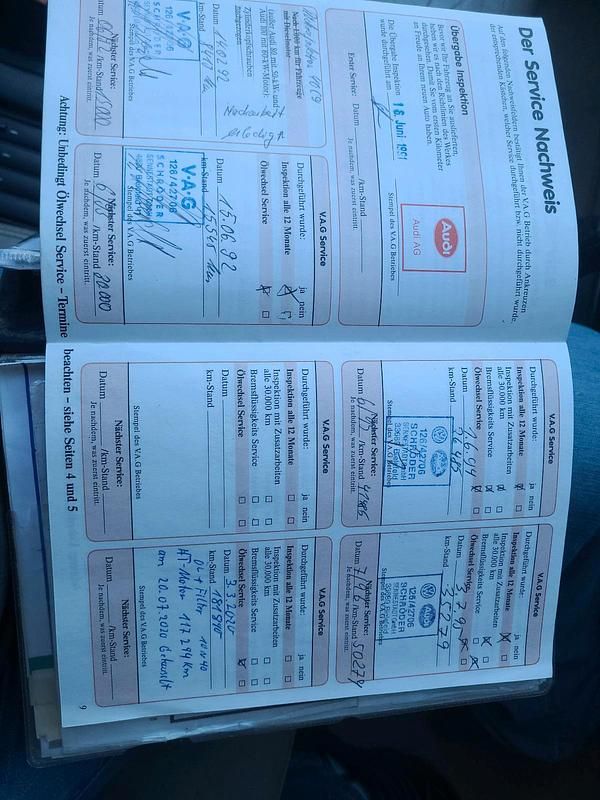 Der Service Nachweis
Auf den folgenden Nachweisfeldern bestätigt Ihnen der V.A.G Betrieb durch Ankreuzen
der entsprechenden Kästchen, welcher Service durchgeführt bzw. nicht durchgeführt wurde.
Übergabe Inspektion
Bevor wir Ihr Fahrzeug an Sie auslieferten,
haben wir es nach den Richtlinien des Werkes
durchgesehen. Damit Sie vom ersten Kilometer
an Freude an Ihrem neuen Auto haben.
Die Übergabe Inspektion
wurde durchgeführt am:
16. Juni 1991
Audi
Audi AG
Stempel des V.A.G Betriebes
Erster Service: Datum /km-Stand
Nach 1000 km für Fahrzeuge
mit Dieselmotor
(außer Audi 80 mit 50-kW- und
Audi 100 mit 60-kW-Motor):
Zylinderkopfschrauben
nachspannen.
Datum 14.02.92
km-Stand
V·A·G
Stempel des V.A.G Betriebes
Nächster Service:
Datum /km-Stand
Je nachdem, was zuerst eintritt.
V.A.G Service
Durchgeführt wurde: ja nein
Inspektion alle 12 Monate
Ölwechsel Service
Datum 15.06.92
km-Stand 15541 km
V·A·G
126/42706
SCHRÖDER
Stempel des V.A.G Betriebes
Nächster Service:
Datum /km-Stand
Je nachdem, was zuerst eintritt.
Achtung: Unbedingt Ölwechsel Service – Termine
V.A.G Service
Durchgeführt wurde: ja nein
Inspektion alle 12 Monate
Inspektion mit Zusatzarbeiten
alle 30.000 km
Bremsflüssigkeits Service
Ölwechsel Service
Datum
km-Stand
126/42706
SCHRÖDER
Stempel des V.A.G Betriebes
Nächster Service:
Datum /km-Stand
Je nachdem, was zuerst eintritt.
V.A.G Service
Durchgeführt wurde: ja nein
Inspektion alle 12 Monate
Inspektion mit Zusatzarbeiten
alle 30.000 km
Bremsflüssigkeits Service
Ölwechsel Service
Datum 3.7.95
km-Stand 35279
126/42706
SCHRÖDER
Stempel des V.A.G Betriebes
Nächster Service:
Datum 7/96 /km-Stand 50279
Je nachdem, was zuerst eintritt.
V.A.G Service
Durchgeführt wurde: ja nein
Inspektion alle 12 Monate
Inspektion mit Zusatzarbeiten
alle 30.000 km
Bremsflüssigkeits Service
Ölwechsel Service
Datum
km-Stand
Stempel des V.A.G Betriebes
Nächster Service:
Datum /km-Stand
Je nachdem, was zuerst eintritt.
V.A.G Service
Durchgeführt wurde: ja nein
Inspektion alle 12 Monate
Inspektion mit Zusatzarbeiten
alle 30.000 km
Bremsflüssigkeits Service
Ölwechsel Service
Datum 3.3.2020
km-Stand
Öl + Filter 10W40
AT-Motor 117794 km
am 20.07.2020 Gekauft
Stempel des V.A.G Betriebes
Nächster Service:
Datum /km-Stand
Je nachdem, was zuerst eintritt.
beachten – siehe Seiten 4 und 5
9